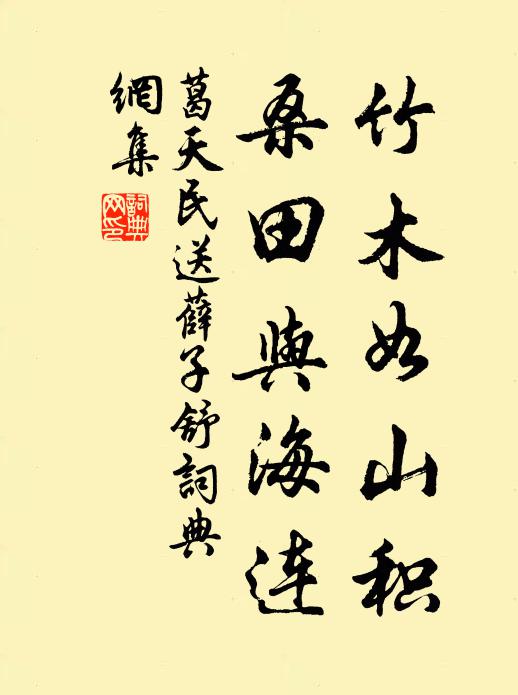 竹木如山积
桑田與海連
葛天民送薛子舒詞典
網集
詞典
网印